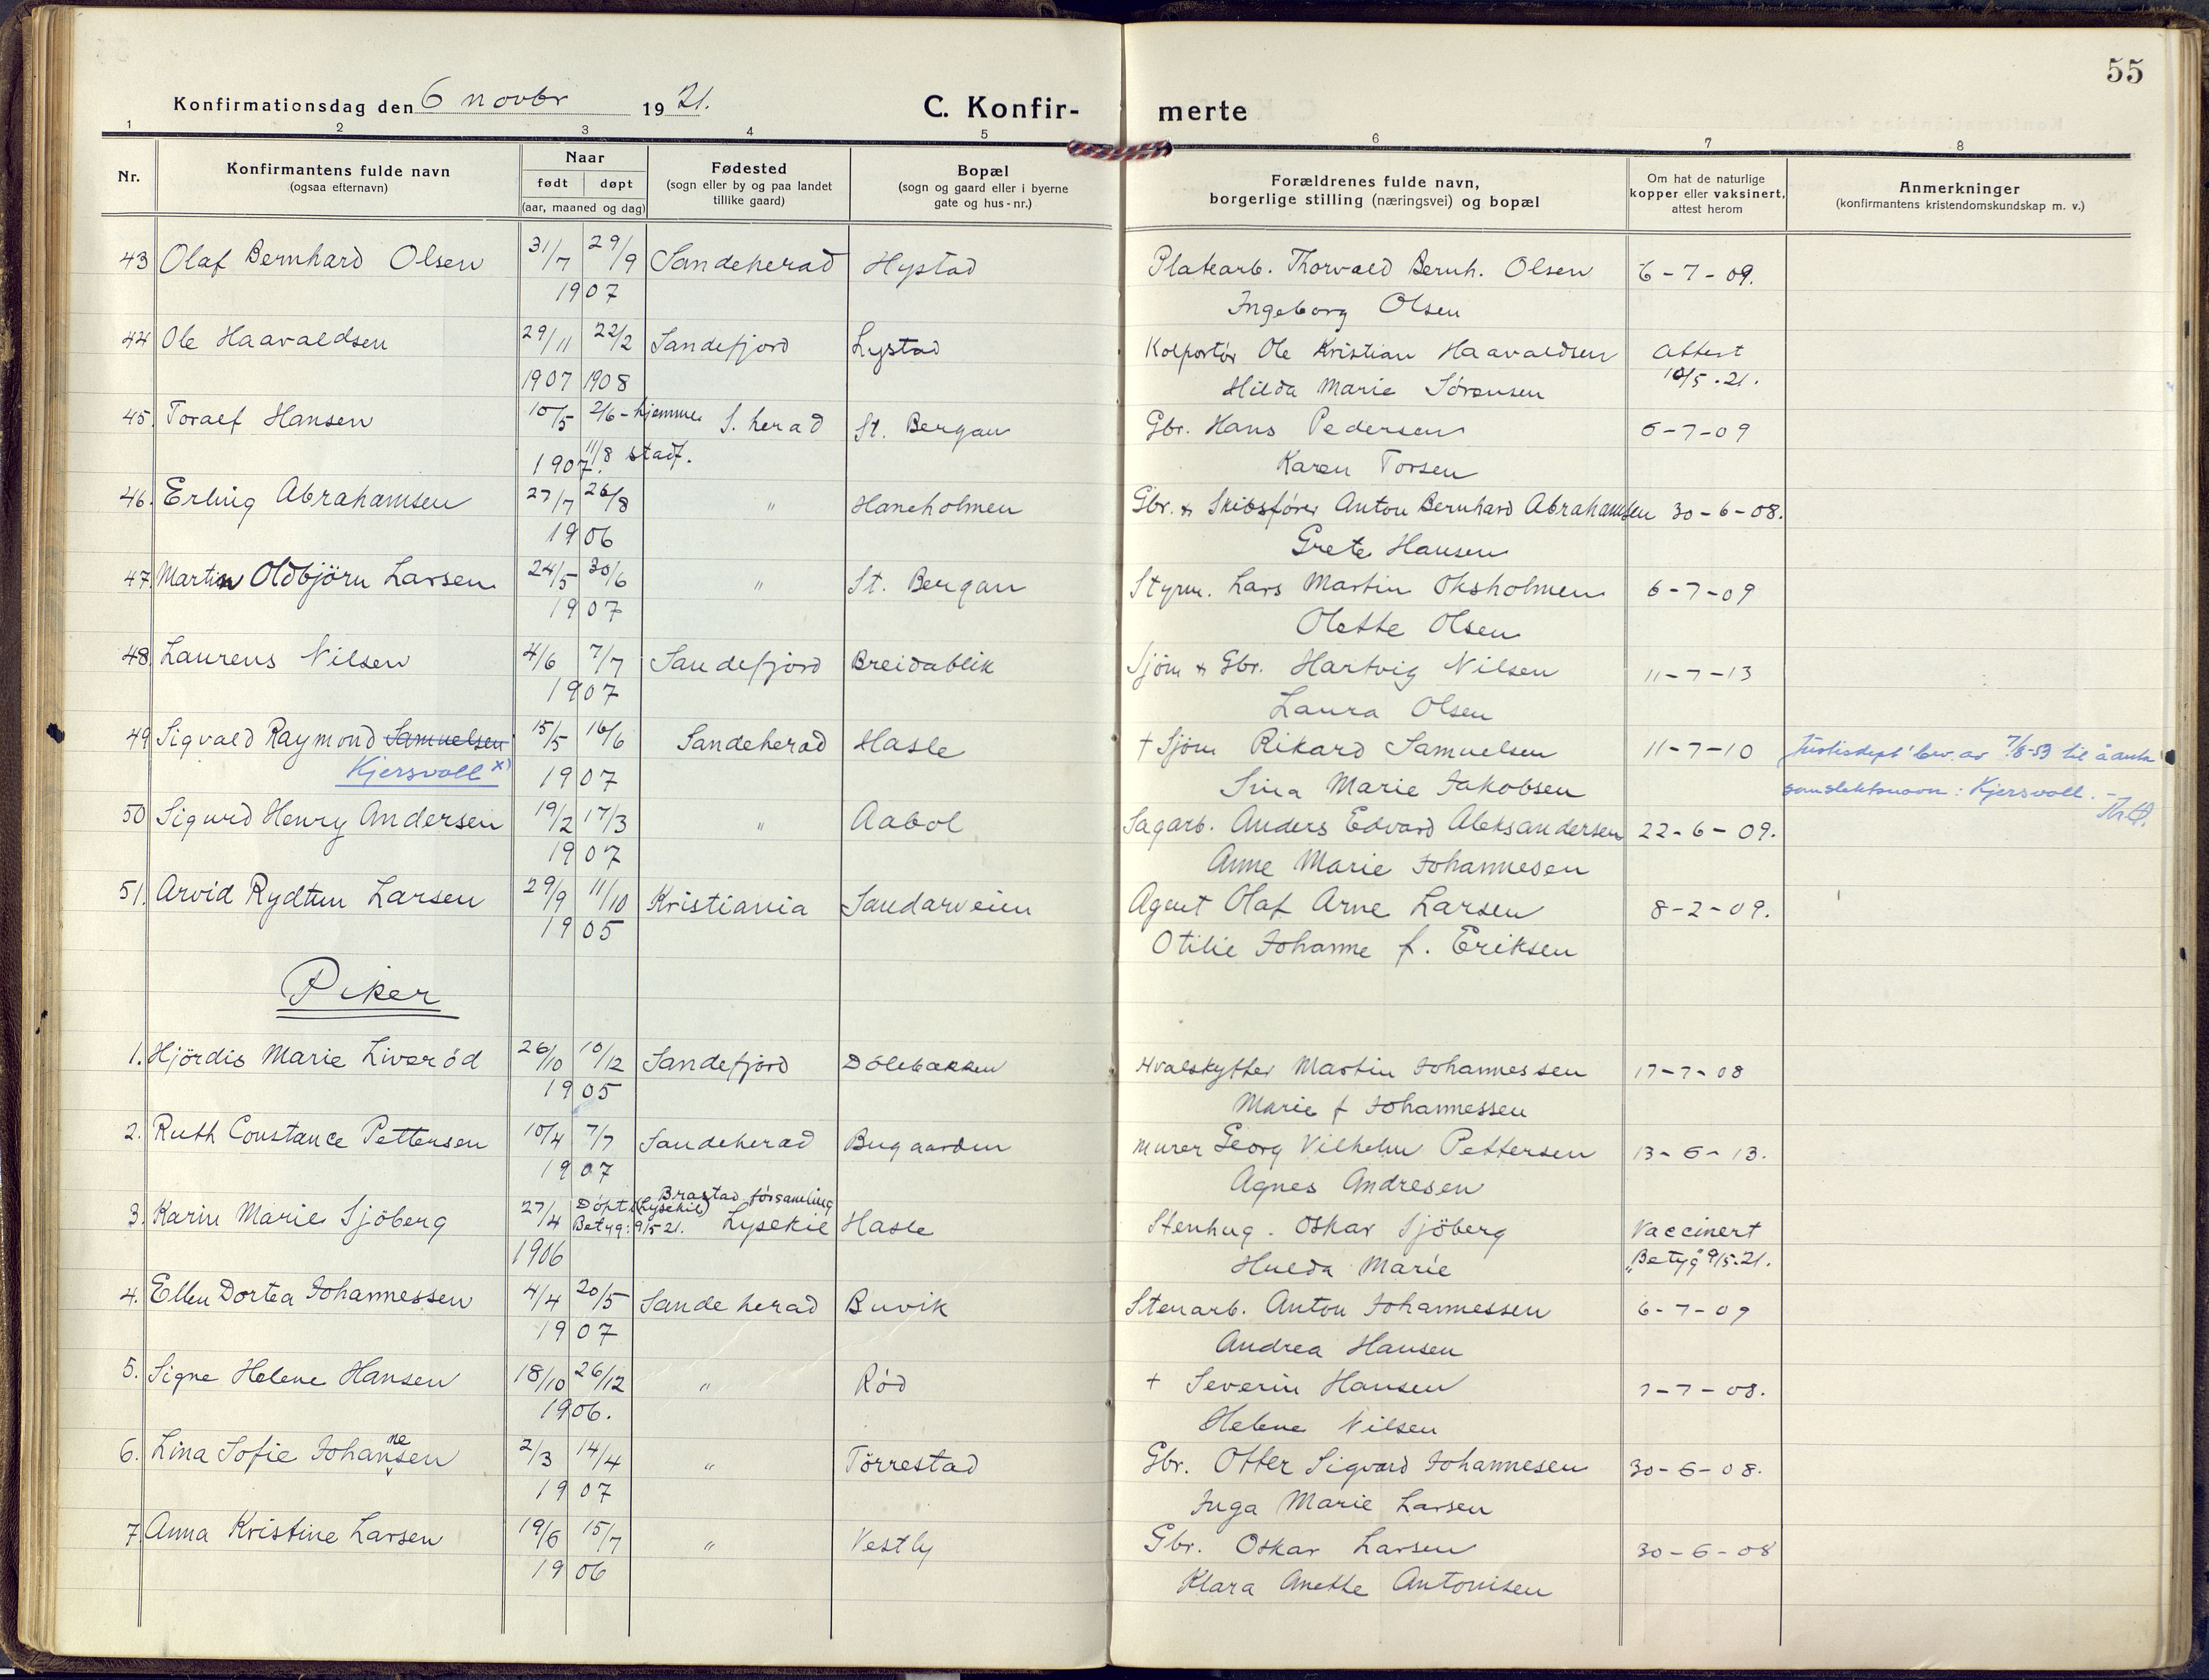 55
Konfirmationsdag den 6 novbr 1921.
C. Konfir- merte
1 2 3 4 5 6 7 8
Nr.
Konfirmantens fulde navn
(ogsaa efternavn)
Naar
født døpt
(aar, maaned og dag)
Fødested
(sogn eller by og paa landet
tillike gaard)
Bopæl
(sogn og gaard eller i byerne
gate og hus-nr.)
Forældrenes fulde navn,
borgerlige stilling (næringsvei) og bopæl
Om hat de naturlige
kopper eller vaksinert,
attest herom
Anmerkninger
(konfirmantens kristendomskundskap m. v.)
43 Olaf Bernhard Olsen 31/7 29/9 Sandeherad Hystad Platearb. Thorvald Bernh. Olsen 6-7-09.
1907 Ingeborg Olsen
44 Ole Haavaldsen 29/11 22/2 Sandefjord Lystad Kolportör Ole Kristian Haavaldsen Attest
1907 1908 Hilda Marie Sörensen 10/5.21.
45. Toralf Hansen 10/5 2/6 - hjemme S. herad St. Bergan Gbr. Hans Pedersen 6-7-09
1907. 11/8 stadf. Karen Torsen
46. Erling Abrahamsen 27/7 26/8 " Haneholmen Gbr. & Skibsförer Anton Bernhard Abrahamsen 30-6-08.
1906 Grete Hansen
47. Martin Oldbjörn Larsen 24/5 30/6 " St. Bergan Styrm. Lars Martin Oksholmen 6-7-09
1907 Olette Olsen
48. Laurens Nilsen 4/6 7/7 Sandefjord Breidablik Sjöm & Gbr. Hartvig Nilsen 11-7-13
1907 Laura Olsen
49 Sigvald Raymond Samuelsen 15/5 16/6 Sandeherad Hasle + Sjöm Rikard Samuelsen 11-7-10 Justisdept' bev. av 7/8-53 til å anta
Kjersvoll x) 1907 Sina Marie Jakobsen som slektsnavn: Kjersvoll. -
50 Sigurd Henry Andersen 19/2 17/3 " Aabol Sagarb. Anders Edvard Aleksandersen 22-6-09.
1907 Anne Marie Johannesen
51. Arvid Rydtun Larsen 29/9 11/10 Kristiania Sandarveien Agent Olaf Arne Larsen 8-2-09.
1905 Otilie Johanne f. Eriksen
Piker
1. Hjördis Marie Liveröd 26/10 10/12 Sandefjord Dölebakken Hvalskytter Martin Johannessen 17-7-08
1905 Marie f Johannessen
2. Ruth Constance Pettersen 10/4 7/7 Sandeherad Bugaarden Murer Georg Vilhelm Pettersen 13-6-13.
1907 Agnes Andresen
3. Karin Marie Sjöberg 27/4 Döpt i Brastad församling (Lysekil) Betyg: 9/5 21. Lysekil Hasle Stenhug. Oskar Sjöberg Vaccinert
1906 Hulda Marie "Betyg" 9/5-21.
4. Ellen Dortea Johannessen 4/4 20/5 Sandeherad Buvik Stenarb. Anton Johannessen 6-7-09
1907 Andrea Hansen
5. Signe Helene Hansen 18/10 26/12 " Röd + Severin Hansen 7-7-08.
1906. Helene Nilsen
6. Lina Sofie Johannesen 2/3 14/4 " Törrestad Gbr. Otter Sigvard Johannesen 30-6-08.
1907 Inga Marie Larsen
7. Anna Kristine Larsen 19/6 15/7 " Vestly Gbr. Oskar Larsen 30-6-08
1906 Klara Anette Antonisen